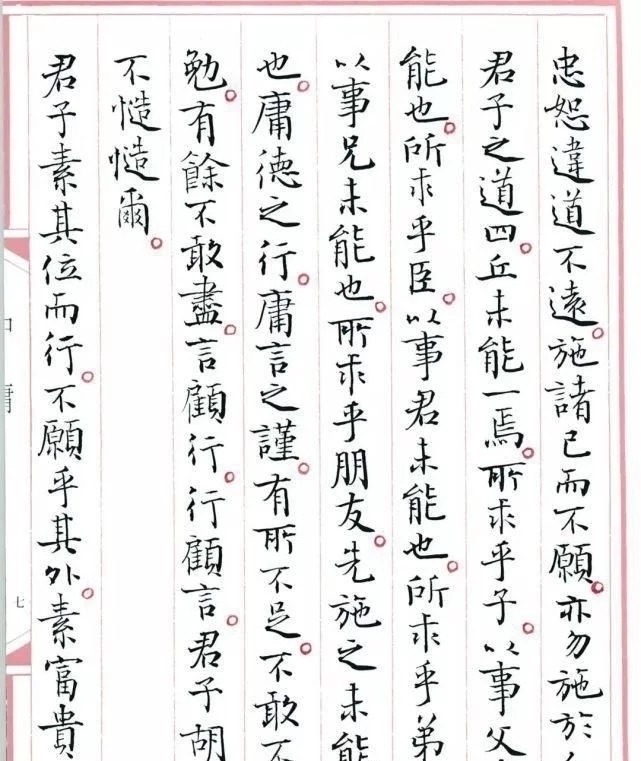 忠恕違道不遠。施諸己而不願。亦勿施於
君子之道四。丘未能一焉。所求乎子。以事父
能也。所求乎臣。以事君未能也。所求乎弟
以事兄未能也。所求乎朋友。先施之未能
也。庸德之行。庸言之謹。有所不足。不敢不
勉。有餘不敢盡。言顧行。行顧言。君子胡
不慥慥爾。
君子素其位而行。不願乎其外。素富貴
庸
七